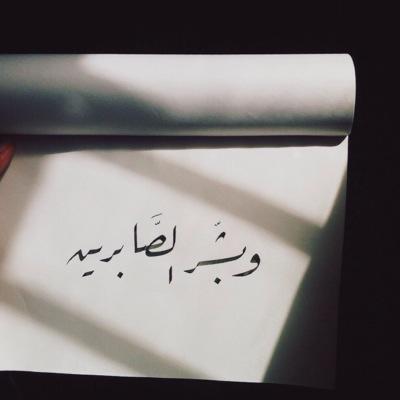 وبشّر الصَّابرين